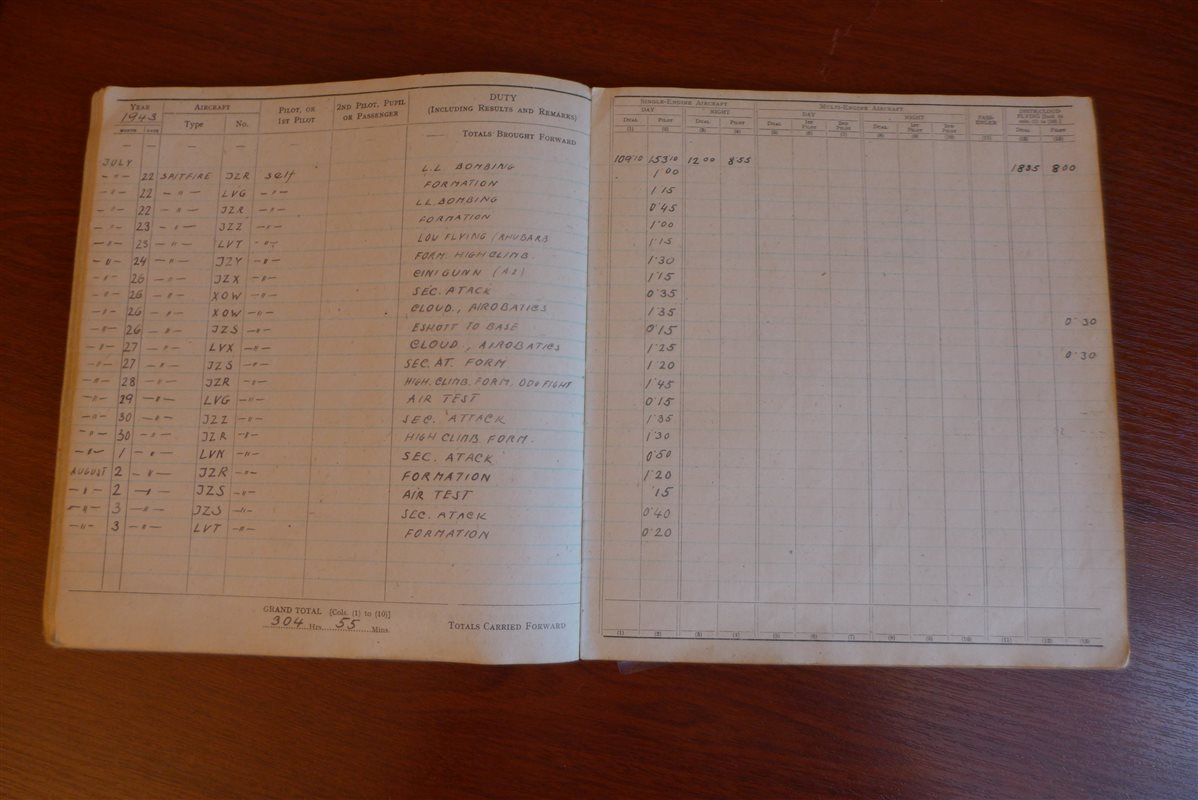 YEAR AIRCRAFT PILOT, OR 1ST PILOT 2ND PILOT, PUPIL OR PASSENGER DUTY (INCLUDING RESULTS AND REMARKS) SINGLE-ENGINE AIRCRAFT MULTI-ENGINE AIRCRAFT PASS-ENGER
1943 DAY NIGHT DAY NIGHT
MONTH DATE Type No. DUAL PILOT DUAL PILOT DUAL 1ST PILOT 2ND PILOT DUAL 1ST PILOT 2ND PILOT DUAL PILOT
(1) (2) (3) (4) (5) (6) (7) (8) (9) (10) (11) (12) (13)
— — — — — TOTALS BROUGHT FORWARD
JULY 109.10 153.10 12.00 8.55 18.35 8.00
—"— 22 SPITFIRE JZR self L.L. BOMBING 1.00
—"— 22 —"— LVG —"— FORMATION 1.15
—"— 22 —"— JZR —"— LL. BOMBING 0.45
—"— 23 —"— JZZ —"— FORMATION 1.00
—"— 23 —"— LVT —"— LOW FLYING / RHUBARB 1.15
—"— 24 —"— JZY —"— FORM. HIGH CLIMB. 1.30
—"— 26 —"— JZX —"— CINIGUNN 1.15
—"— 26 —"— XOW —"— SEC. ATACK 0.35
—"— 26 —"— XOW —"— CLOUD., AIROBATICS 1.35 0.30
—"— 26 —"— JZS —"— ESHOTT TO BASE 0.15
—"— 27 —"— LVX —"— CLOUD, AIROBATICS 1.25 0.30
—"— 27 —"— JZS —"— SEC. AT. FORM 1.20
—"— 28 —"— JZR —"— HIGH. CLIMB. FORM. DOGFIGHT 1.45
—"— 29 —"— LVG —"— AIR TEST 0.15
—"— 30 —"— JZZ —"— SEC. ATTACK 1.35
—"— 30 —"— JZR —"— HIGH CLIMB FORM. 1.30
—"— 1 —"— LVN —"— SEC. ATACK 0.50
AUGUST 2 —"— JZR —"— FORMATION 1.20
—"— 2 —"— JZS —"— AIR TEST .15
—"— 3 —"— JZS —"— SEC. ATACK 0.40
—"— 3 —"— LVT —"— FORMATION 0.20
GRAND TOTAL [Cols. (1) to (10)]
304 Hrs. 55 Mins. TOTALS CARRIED FORWARD
(1) (2) (3) (4) (5) (6) (7) (8) (9) (10) (11) (12) (13)